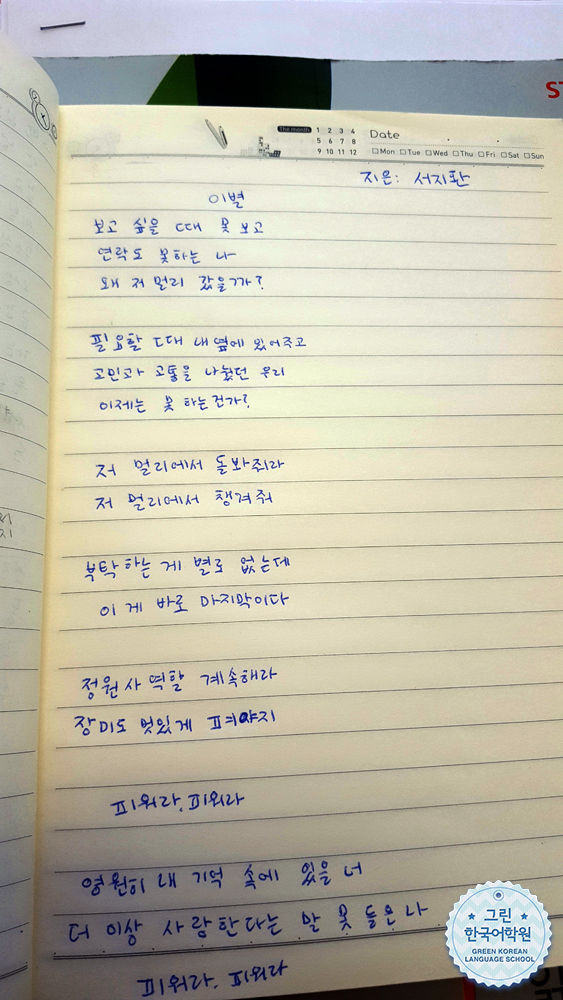 The month 1 2 3 4
5 6 7 8
9 10 11 12
Date
Mon Tue Wed Thu Fri Sat Sun
지은: 서지환
이별
보고 싶을 때 못 보고
연락도 못하는 나
왜 저 멀리 갔을까?
필요할 때 내 옆에 있어주고
고민과 고통을 나눴던 우리
이제는 못 하는건가?
저 멀리에서 돌봐줘라
저 멀리에서 챙겨줘
부탁하는 게 별로 없는데
이 게 바로 마지막이다
정원사 역할 계속해라
장미도 멋있게 펴야지
피워라, 피워라
영원히 내 기억 속에 있을 너
더 이상 사랑한다는 말 못 듣은 나
피워라. 피워라
그린
한국어학원
GREEN KOREAN
LANGUAGE SCHOOL